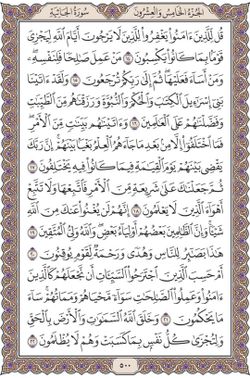 الجزء الخامس والعشرون
سورة الجاثية
قُل لِّلَّذِينَ ءَامَنُوا۟ يَغْفِرُوا۟ لِلَّذِينَ لَا يَرْجُونَ أَيَّامَ ٱللَّهِ لِيَجْزِىَ
قَوْمًۢا بِمَا كَانُوا۟ يَكْسِبُونَ ١٤ مَنْ عَمِلَ صَٰلِحًا فَلِنَفْسِهِۦ ۖ
وَمَنْ أَسَآءَ فَعَلَيْهَا ۖ ثُمَّ إِلَىٰ رَبِّكُمْ تُرْجَعُونَ ١٥ وَلَقَدْ ءَاتَيْنَا
بَنِىٓ إِسْرَٰٓءِيلَ ٱلْكِتَٰبَ وَٱلْحُكْمَ وَٱلنُّبُوَّةَ وَرَزَقْنَٰهُم مِّنَ ٱلطَّيِّبَٰتِ
وَفَضَّلْنَٰهُمْ عَلَى ٱلْعَٰلَمِينَ ١٦ وَءَاتَيْنَٰهُم بَيِّنَٰتٍ مِّنَ ٱلْأَمْرِ ۖ
فَمَا ٱخْتَلَفُوٓا۟ إِلَّا مِنۢ بَعْدِ مَا جَآءَهُمُ ٱلْعِلْمُ بَغْيًۢا بَيْنَهُمْ ۚ إِنَّ رَبَّكَ
يَقْضِى بَيْنَهُمْ يَوْمَ ٱلْقِيَٰمَةِ فِيمَا كَانُوا۟ فِيهِ يَخْتَلِفُونَ ١٧
ثُمَّ جَعَلْنَٰكَ عَلَىٰ شَرِيعَةٍ مِّنَ ٱلْأَمْرِ فَٱتَّبِعْهَا وَلَا تَتَّبِعْ
أَهْوَآءَ ٱلَّذِينَ لَا يَعْلَمُونَ ١٨ إِنَّهُمْ لَن يُغْنُوا۟ عَنكَ مِنَ ٱللَّهِ
شَيْـًٔا ۚ وَإِنَّ ٱلظَّٰلِمِينَ بَعْضُهُمْ أَوْلِيَآءُ بَعْضٍ ۖ وَٱللَّهُ وَلِىُّ ٱلْمُتَّقِينَ ١٩
هَٰذَا بَصَٰٓئِرُ لِلنَّاسِ وَهُدًى وَرَحْمَةٌ لِّقَوْمٍ يُوقِنُونَ ٢٠
أَمْ حَسِبَ ٱلَّذِينَ ٱجْتَرَحُوا۟ ٱلسَّيِّـَٔاتِ أَن نَّجْعَلَهُمْ كَٱلَّذِينَ
ءَامَنُوا۟ وَعَمِلُوا۟ ٱلصَّٰلِحَٰتِ سَوَآءً مَّحْيَاهُمْ وَمَمَاتُهُمْ ۚ سَآءَ
مَا يَحْكُمُونَ ٢١ وَخَلَقَ ٱللَّهُ ٱلسَّمَٰوَٰتِ وَٱلْأَرْضَ بِٱلْحَقِّ
وَلِتُجْزَىٰ كُلُّ نَفْسٍۭ بِمَا كَسَبَتْ وَهُمْ لَا يُظْلَمُونَ ٢٢
٥٠٠